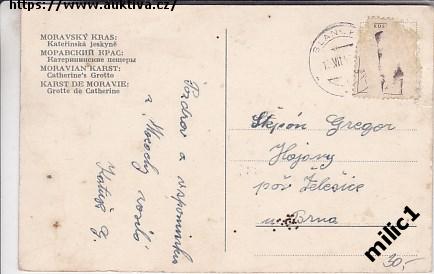 https://www.auktiva.cz/
MORAVSKÝ KRAS:
Kateřinská jeskyně
МОРАВСКИЙ КРАС:
Катерининские пещеры
MORAVIAN KARST:
Catherine's Grotto
KARST DE MORAVIE:
Grotte de Catherine
Pozdrav a vzpomínku
z Macochy
BLAN
Gregor
Hajany
Želešice
u Brna
30,-
milic1